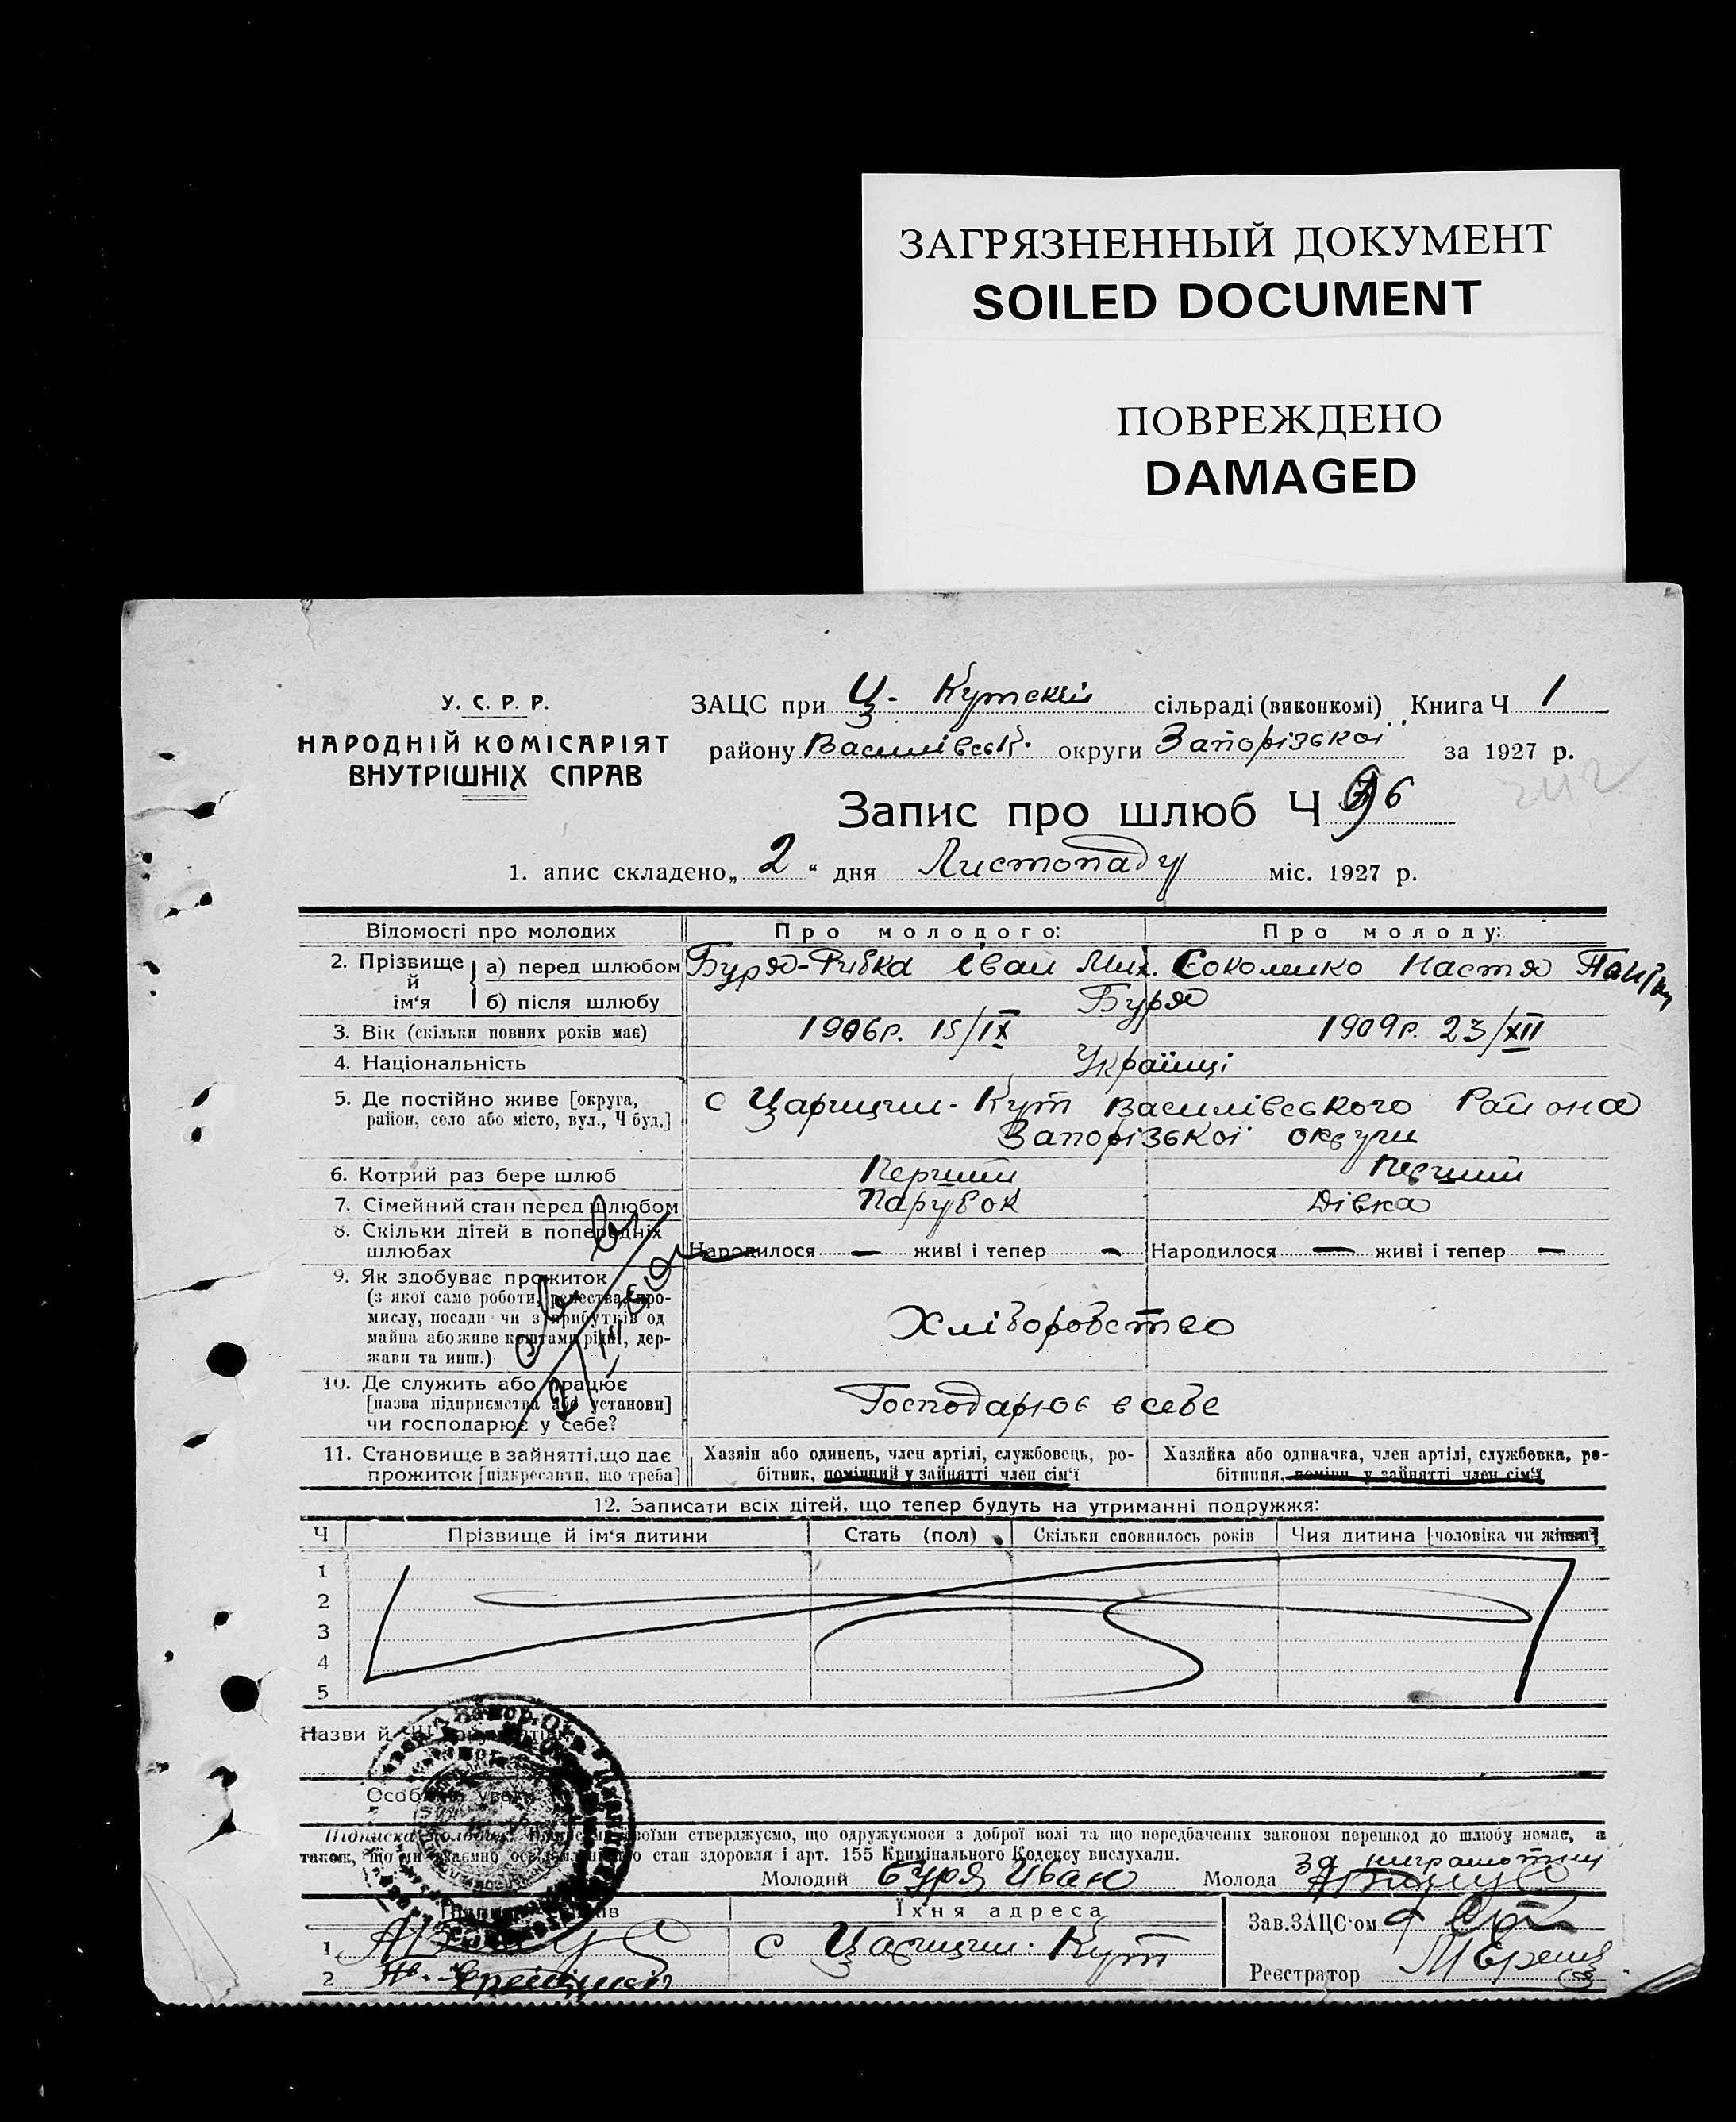 ЗАГРЯЗНЕННЫЙ ДОКУМЕНТ
SOILED DOCUMENT
ПОВРЕЖДЕНО
DAMAGED
У. С. Р. Р.
НАРОДНІЙ КОМІСАРІЯТ
ВНУТРІШНІХ СПРАВ
ЗАЦС при Ц- Кутскій сільраді (виконкомі) Книга Ч 1
району Василівськ. округи Запорізької за 1927 р.
Запис про шлюб Ч 96
1. апис складено „ 2 “ дня Листопаду міс. 1927 р.
Відомості про молодих Про молодого: Про молоду:
2. Прізвище й ім‘я а) перед шлюбом Буря-Рибка Іван Мих. Соколенко Настя
б) після шлюбу Буря
3. Вік (скільки повних років має) 1906р. 15/IX 1909р. 23/XII
4. Національність Українці
5. Де постійно живе [округа, с Царицин-Кут Василівського Района
район, село або місто, вул., Ч буд.] Запорізької округи
6. Котрий раз бере шлюб Перший Перший
7. Сімейний стан перед шлюбом Парубок Дівка
8. Скільки дітей в попередніх
шлюбах Народилося — живі і тепер - Народилося — живі і тепер —
9. Як здобуває прожиток
(з якої саме роботи, ремества, про-
мислу, посади чи з прибутків од
майна або живе коштами рідні, дер-
жави та инш.) Хліборобство
10. Де служить або працює
[назва підприємства або установи] Господарює в себе
чи господарює у себе?
11. Становище в зайнятті, що дає Хазяїн або одинець, член артілі, службовець, ро- Хазяйка або одиначка, член артілі, службовка, ро-
прожиток [підкреслити, що треба] бітник, помічний у зайнятті член сім‘ї бітниця, помічн. у зайнятті член сім‘ї
12. Записати всіх дітей, що тепер будуть на утриманні подружжя:
Ч Прізвище й ім‘я дитини Стать (пол) Скільки сповнилось років Чия дитина [чоловіка чи жінки]
1
2
3
4
5
Назви й
Підписка
стверджуємо, що одружуємося з доброї волі та що передбачених законом перешкод до шлюбу немає, а
також, що стан здоровля і арт. 155 Кримінального Кодексу вислухали.
за
Молодий Буря Иван Молода
Їхня адреса Зав.ЗАЦС‘ом
1 с Царицин-Кут
2 Реєстратор